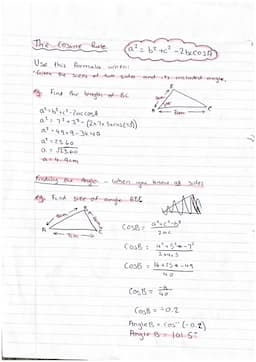 The Cosine Rule
a² = b² + c² - 2bccosA
Use this formula when:
Given the sizes of two sides and its included angle.
eg. Find the length of BC
B
A
C
a² = b² + c² - 2bccosA
a² = 49 + 9 - 34.40
a² = 23.60
a = √23.60
a = 4.9cm
Finding the Angle - When you know all sides
eg. Find size of angle ABC
B
A
C
CosB = a² + c² - b²
2ac
CosB = 4² + 5² - 7²
2×4×5
CosB = 16 + 25 - 49
40
CosB = -8
40
CosB = -0.2
Angle B = cos⁻¹ (-0.2)
Angle B = 101.5°